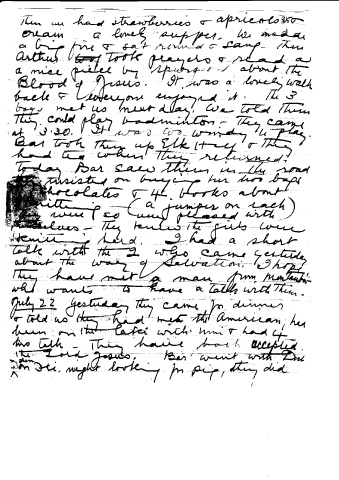 Then we had strawberries & apricots &
cream - a lovely supper. We made
a big fire & sat round & sang. Then
Arthur took prayers & read a
a nice piece by Spurgeon about the
Blood of Jesus. It was a lovely walk
back & everyone enjoyed it. The 3
boys met us next day. We told them
they could play badminton - they came
at 3.30. It was too windy to play.
Bar took them up Elk Head & they
had tea when they returned.
Today Bar saw them on the road
insisted on buying her two bags
chocolates & 4 books about
knitting (a jumper on each)
were so very pleased with
themselves - they knew the girls were
knitting hard. I had a short
talk with the 2 who came yesterday
about the way of Salvation. I hope
they have met a man from
who wants to have a talk with them.
July 22 yesterday they came for dinner
& told us they had met the American, has
been on the lake with him & had
his talk - They have both accepted
the Lord Jesus. Bar went with
on Fri. night looking for pig, they did